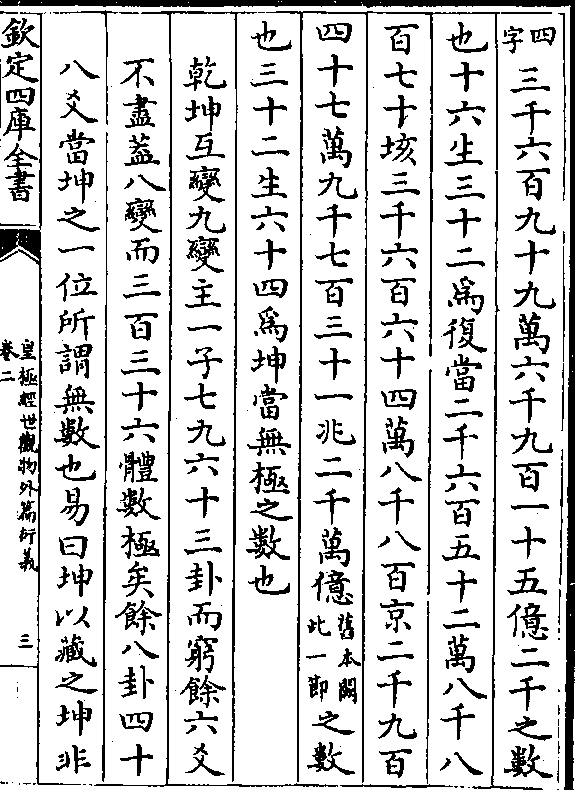 四字三千六百九十九萬六千九百一十五億二千之數
也十六生三十二為復當二千六百五十二萬八千八
百七十垓三千六百六十四萬八千八百京二千九百
四十七萬九千七百三十一兆二千萬億舊本闕此一節之數
也三十二生六十四為坤當無極之數也
乾坤互變九變主一子七九六十三卦而窮餘六爻
不盡葢八變而三百三十六體數極矣餘八卦四十
八爻當坤之一位所謂無數也易曰坤以藏之坤非
欽定四庫全書
皇極經世觀物外篇衍義
卷二
三